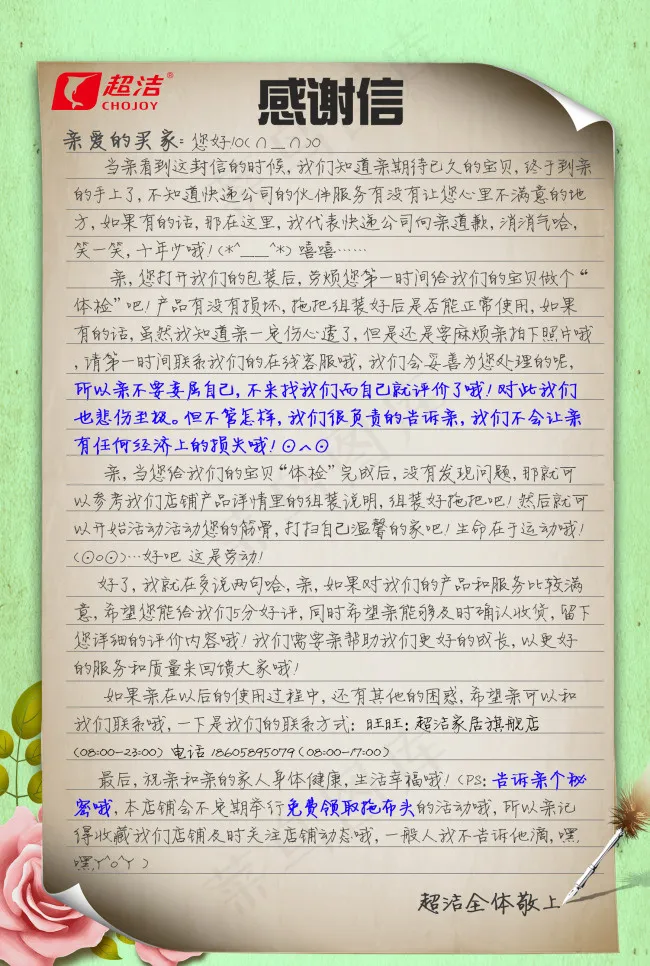 超洁®
CHOJOY
感谢信
亲爱的买家：您好！O(∩__∩)O
当亲看到这封信的时候，我们知道亲期待已久的宝贝，终于到亲
的手上了，不知道快递公司的伙伴服务有没有让您心里不满意的地
方，如果有的话，那在这里，我代表快递公司向亲道歉，消消气哈，
笑一笑，十年少哦！(*^____^*) 嘻嘻……
亲，您打开我们的包装后，劳烦您第一时间给我们的宝贝做个“
体检”吧！产品有没有损坏，拖把组装好后是否能正常使用，如果
有的话，虽然我知道亲一定伤心透了，但是还是要麻烦亲拍下照片哦
，请第一时间联系我们的在线客服哦，我们会妥善为您处理的呢，
所以亲不要委屈自己，不来找我们而自己就评价了哦！对此我们
也悲伤至极。但不管怎样，我们很负责的告诉亲，我们不会让亲
有任何经济上的损失哦！⊙︿⊙
亲，当您给我们的宝贝“体检”完成后，没有发现问题，那就可
以参考我们店铺产品详情里的组装说明，组装好拖把吧！然后就可
以开始活动活动您的筋骨，打扫自己温馨的家吧！生命在于运动哦！
(⊙o⊙)…好吧 这是劳动！
好了，我就在多说两句哈，亲，如果对我们的产品和服务比较满
意，希望您能给我们5分好评，同时希望亲能够及时确认收货，留下
您详细的评价内容哦！我们需要亲帮助我们更好的成长，以更好
的服务和质量来回馈大家哦！
如果亲在以后的使用过程中，还有其他的困惑，希望亲可以和
我们联系哦，一下是我们的联系方式：旺旺：超洁家居旗舰店
(08:00-23:00) 电话 18605895079(08:00-17:00)
最后，祝亲和亲的家人身体健康，生活幸福哦！(PS：告诉亲个秘
密哦，本店铺会不定期举行免费领取拖布头的活动哦，所以亲记
得收藏我们店铺及时关注店铺动态哦，一般人我不告诉他滴，嘿，
嘿，Y^o^Y )
超洁全体敬上